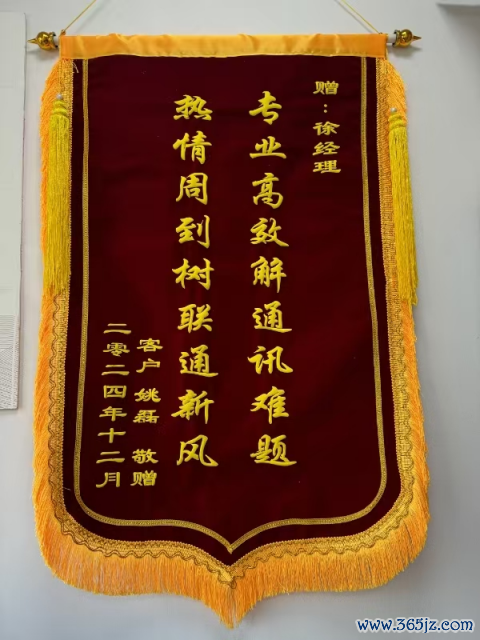 赠：徐经理
专业高效解通讯难题
热情周到树联通新风
客户 姚磊 敬赠
二零二四年十二月
www.365jz.com